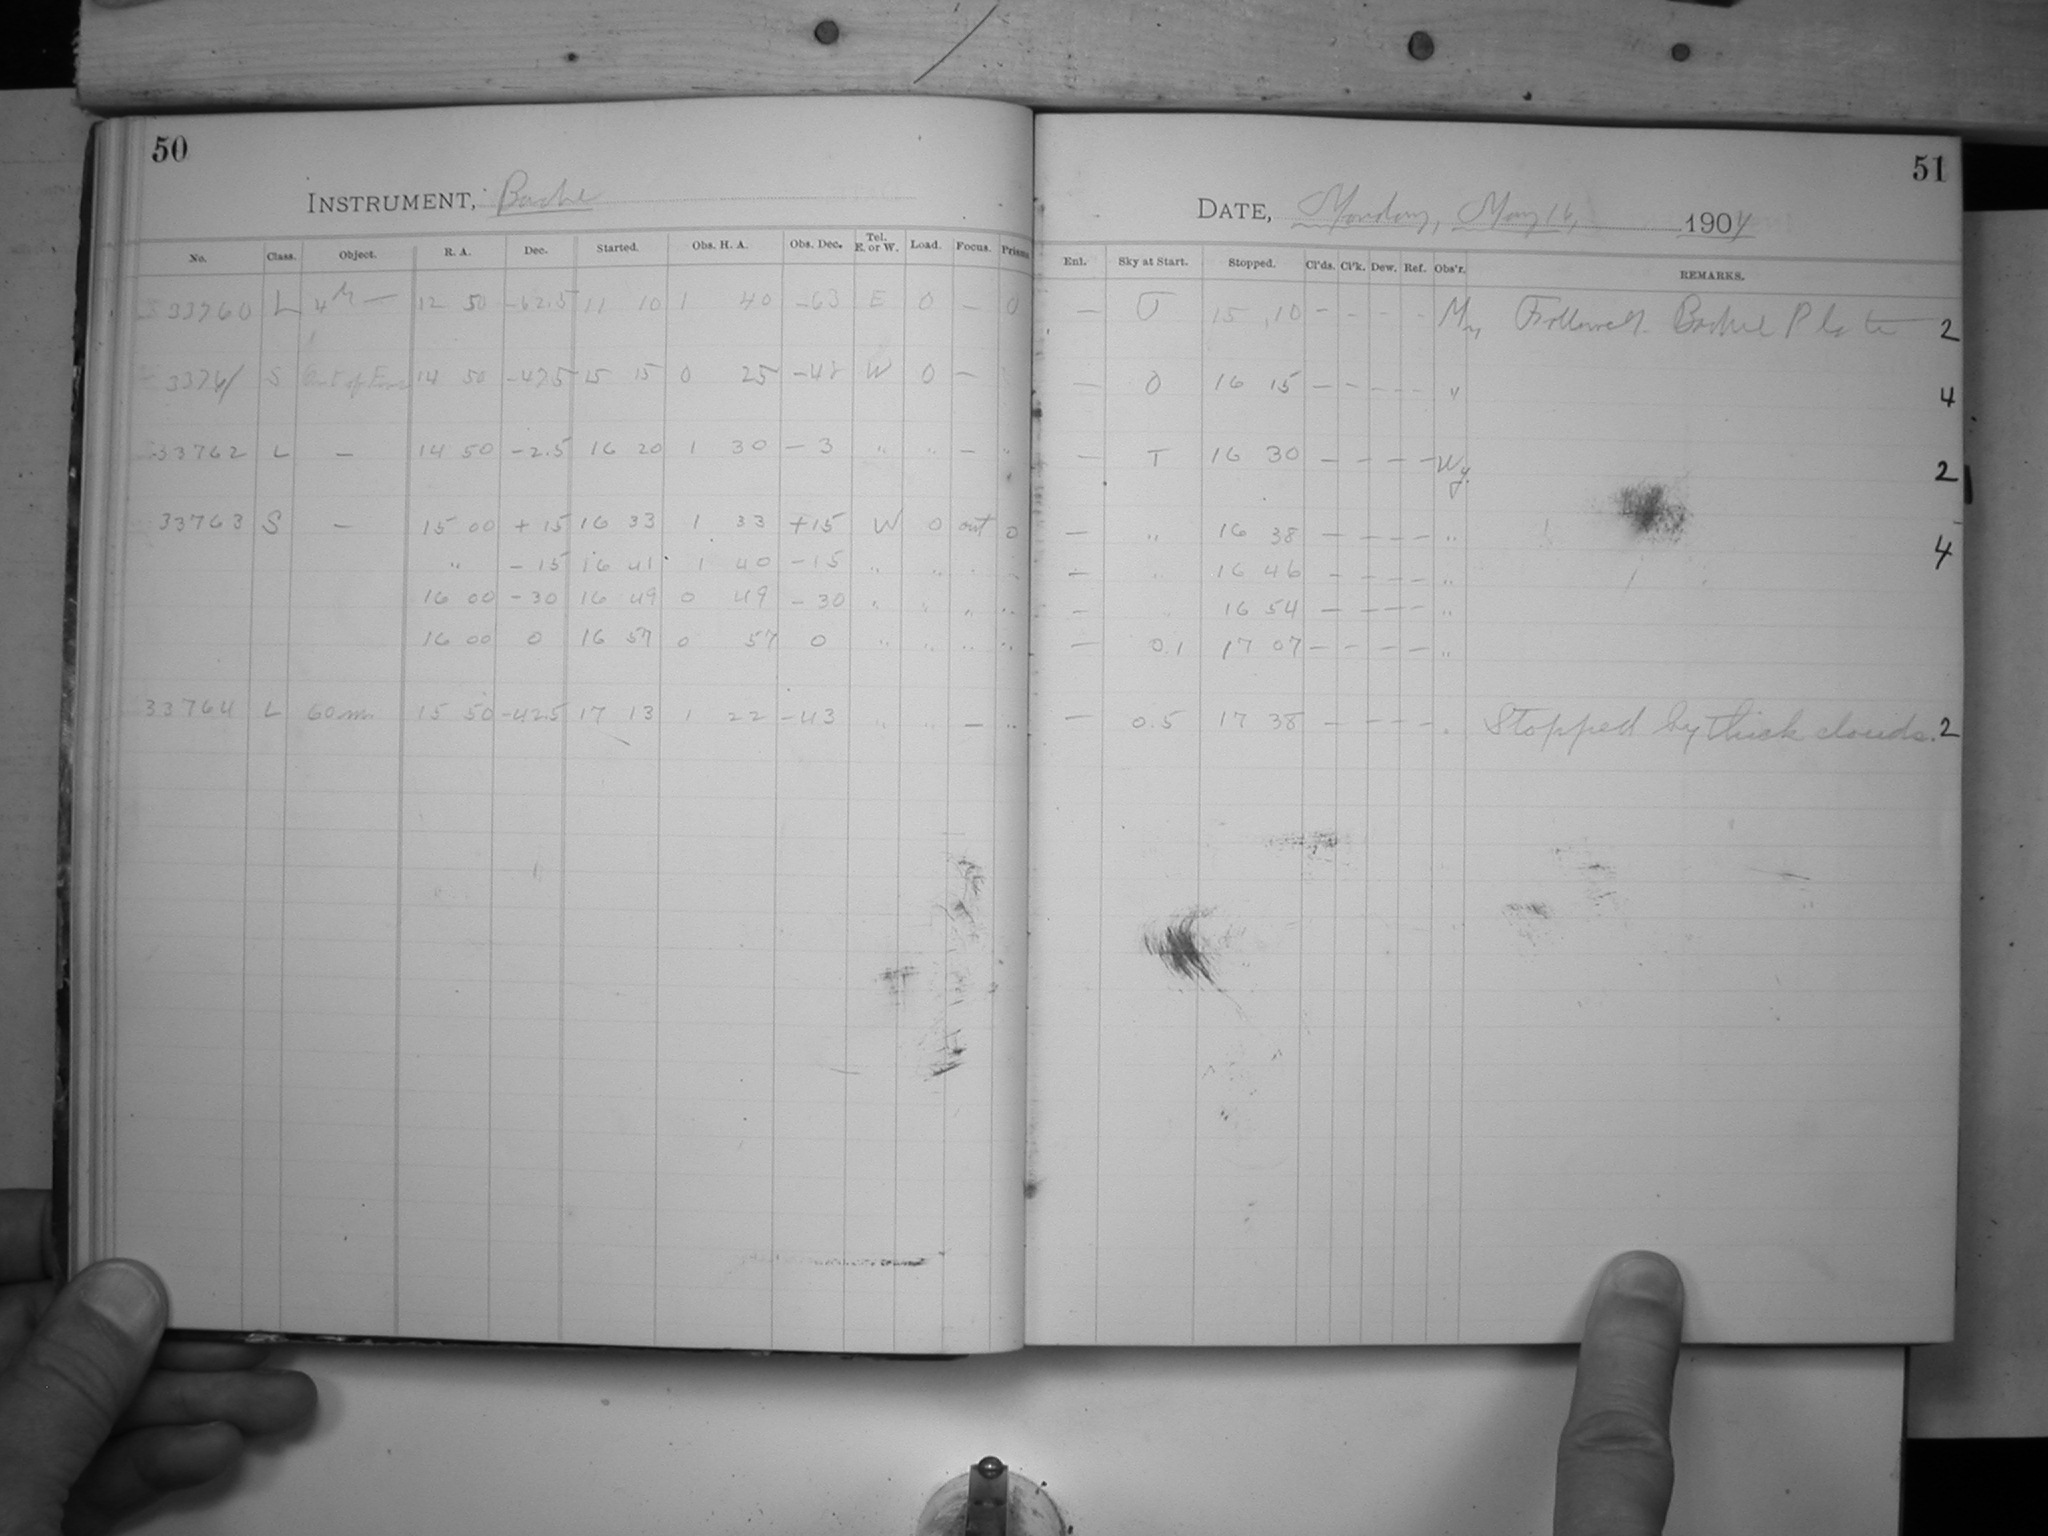 50
INSTRUMENT, Bache
No. Class. Object. R. A. Dec. Started. Obs. H. A. Obs. Dec. Tel. E. or W. Load. Focus. Prisms
33760 L 4h — 12 50 -62.5 11 10 1 40 -63 E 0 — 0
33761 S Out of Focus 14 50 -47.5 15 15 0 25 -48 W 0 —
33762 L — 14 50 -2.5 16 20 1 30 - 3 " " — "
33763 S — 15 00 + 15 16 33 1 33 +15 W 0 out 0
" - 15 16 41 1 40 -15 " "
16 00 - 30 16 49 0 49 - 30 " " " "
16 00 0 16 57 0 57 0 " " " "
33764 L 60m. 15 50 -42.5 17 13 1 22 -43 " " — "
51
DATE, Monday, May 16, 1904
Enl. Sky at Start. Stopped. Cl'ds. Cl'k. Dew. Ref. Obs'r. REMARKS.
— 15 10 - - - - Followed Bache Plate 2
— 0 16 15 — - - - " 4
— T 16 30 — — — — Wy. 2
— " 16 38 — — — — " 4
— 16 46 — — — — "
— 16 54 — — — — "
— 0.1 17 07 — — — — "
— 0.5 17 38 — — — — " Stopped by thick clouds. 2